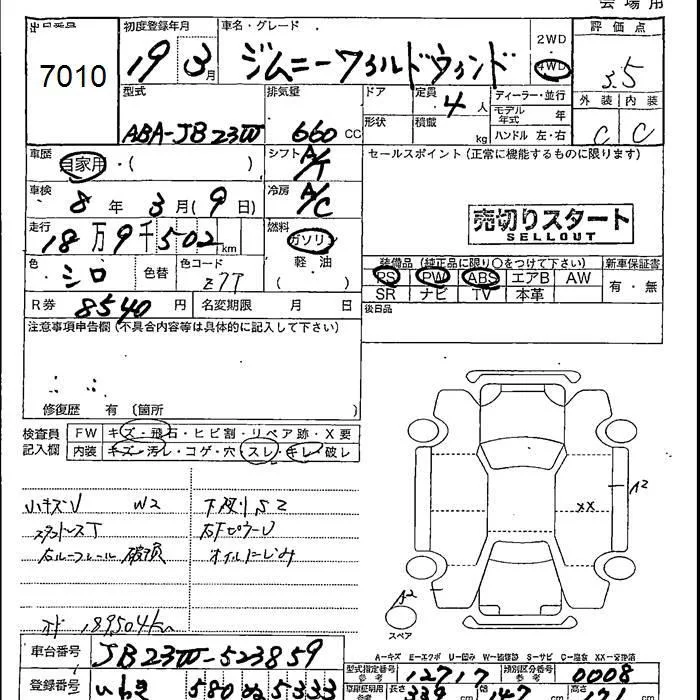 会場用
出品番号
7010
初度登録年月
19 3月
車名・グレード
ジムニーワイルドウィンド
2WD
4WD
評価点
3.5
外装 内装
C C
型式
ABA-JB23W
排気量
660 CC
ドア
形状
定員 4人
積載 kg
ディーラー・並行
モデル年式 年
ハンドル 左・右
車歴
自家用・( )
シフト A/T
セールスポイント(正常に機能するものに限ります)
車検
8年 3月(9日)
冷房 A/C
売切りスタート
SELLOUT
走行
18万9千502km
燃料
ガソリン
軽・油
色
シロ
色替
色コード
Z7T
装備品(純正品に限り○をつけて下さい)
新車保証書
PS PW ABS エアB AW
SR ナビ TV 本革
有・無
R券 8540円
名変期限 月 日
後日品
注意事項申告欄(不具合内容等は具体的に記入して下さい)
修復歴 有〔箇所 〕
検査員
記入欄
FW キズ・飛石・ヒビ割・リペア跡・X要
内装 キズ・汚レ・コゲ・穴・スレ・キレ・破レ
小キズU W2
下廻りS2
スタットレスT
右ルーフレール破損
オイルにじみ
XX
A2
A2
スペア
オド 189504km
A-キズ E-エクボ U-凹み W-補修跡 S-サビ C-腐食 XX-交換済
車台番号 JB23W-523859
型式指定番号 参考 12717
類別区分番号 参考 0008
登録番号 いわき 580 ぬ 5333
長さ 339 cm
幅 147 cm
高さ